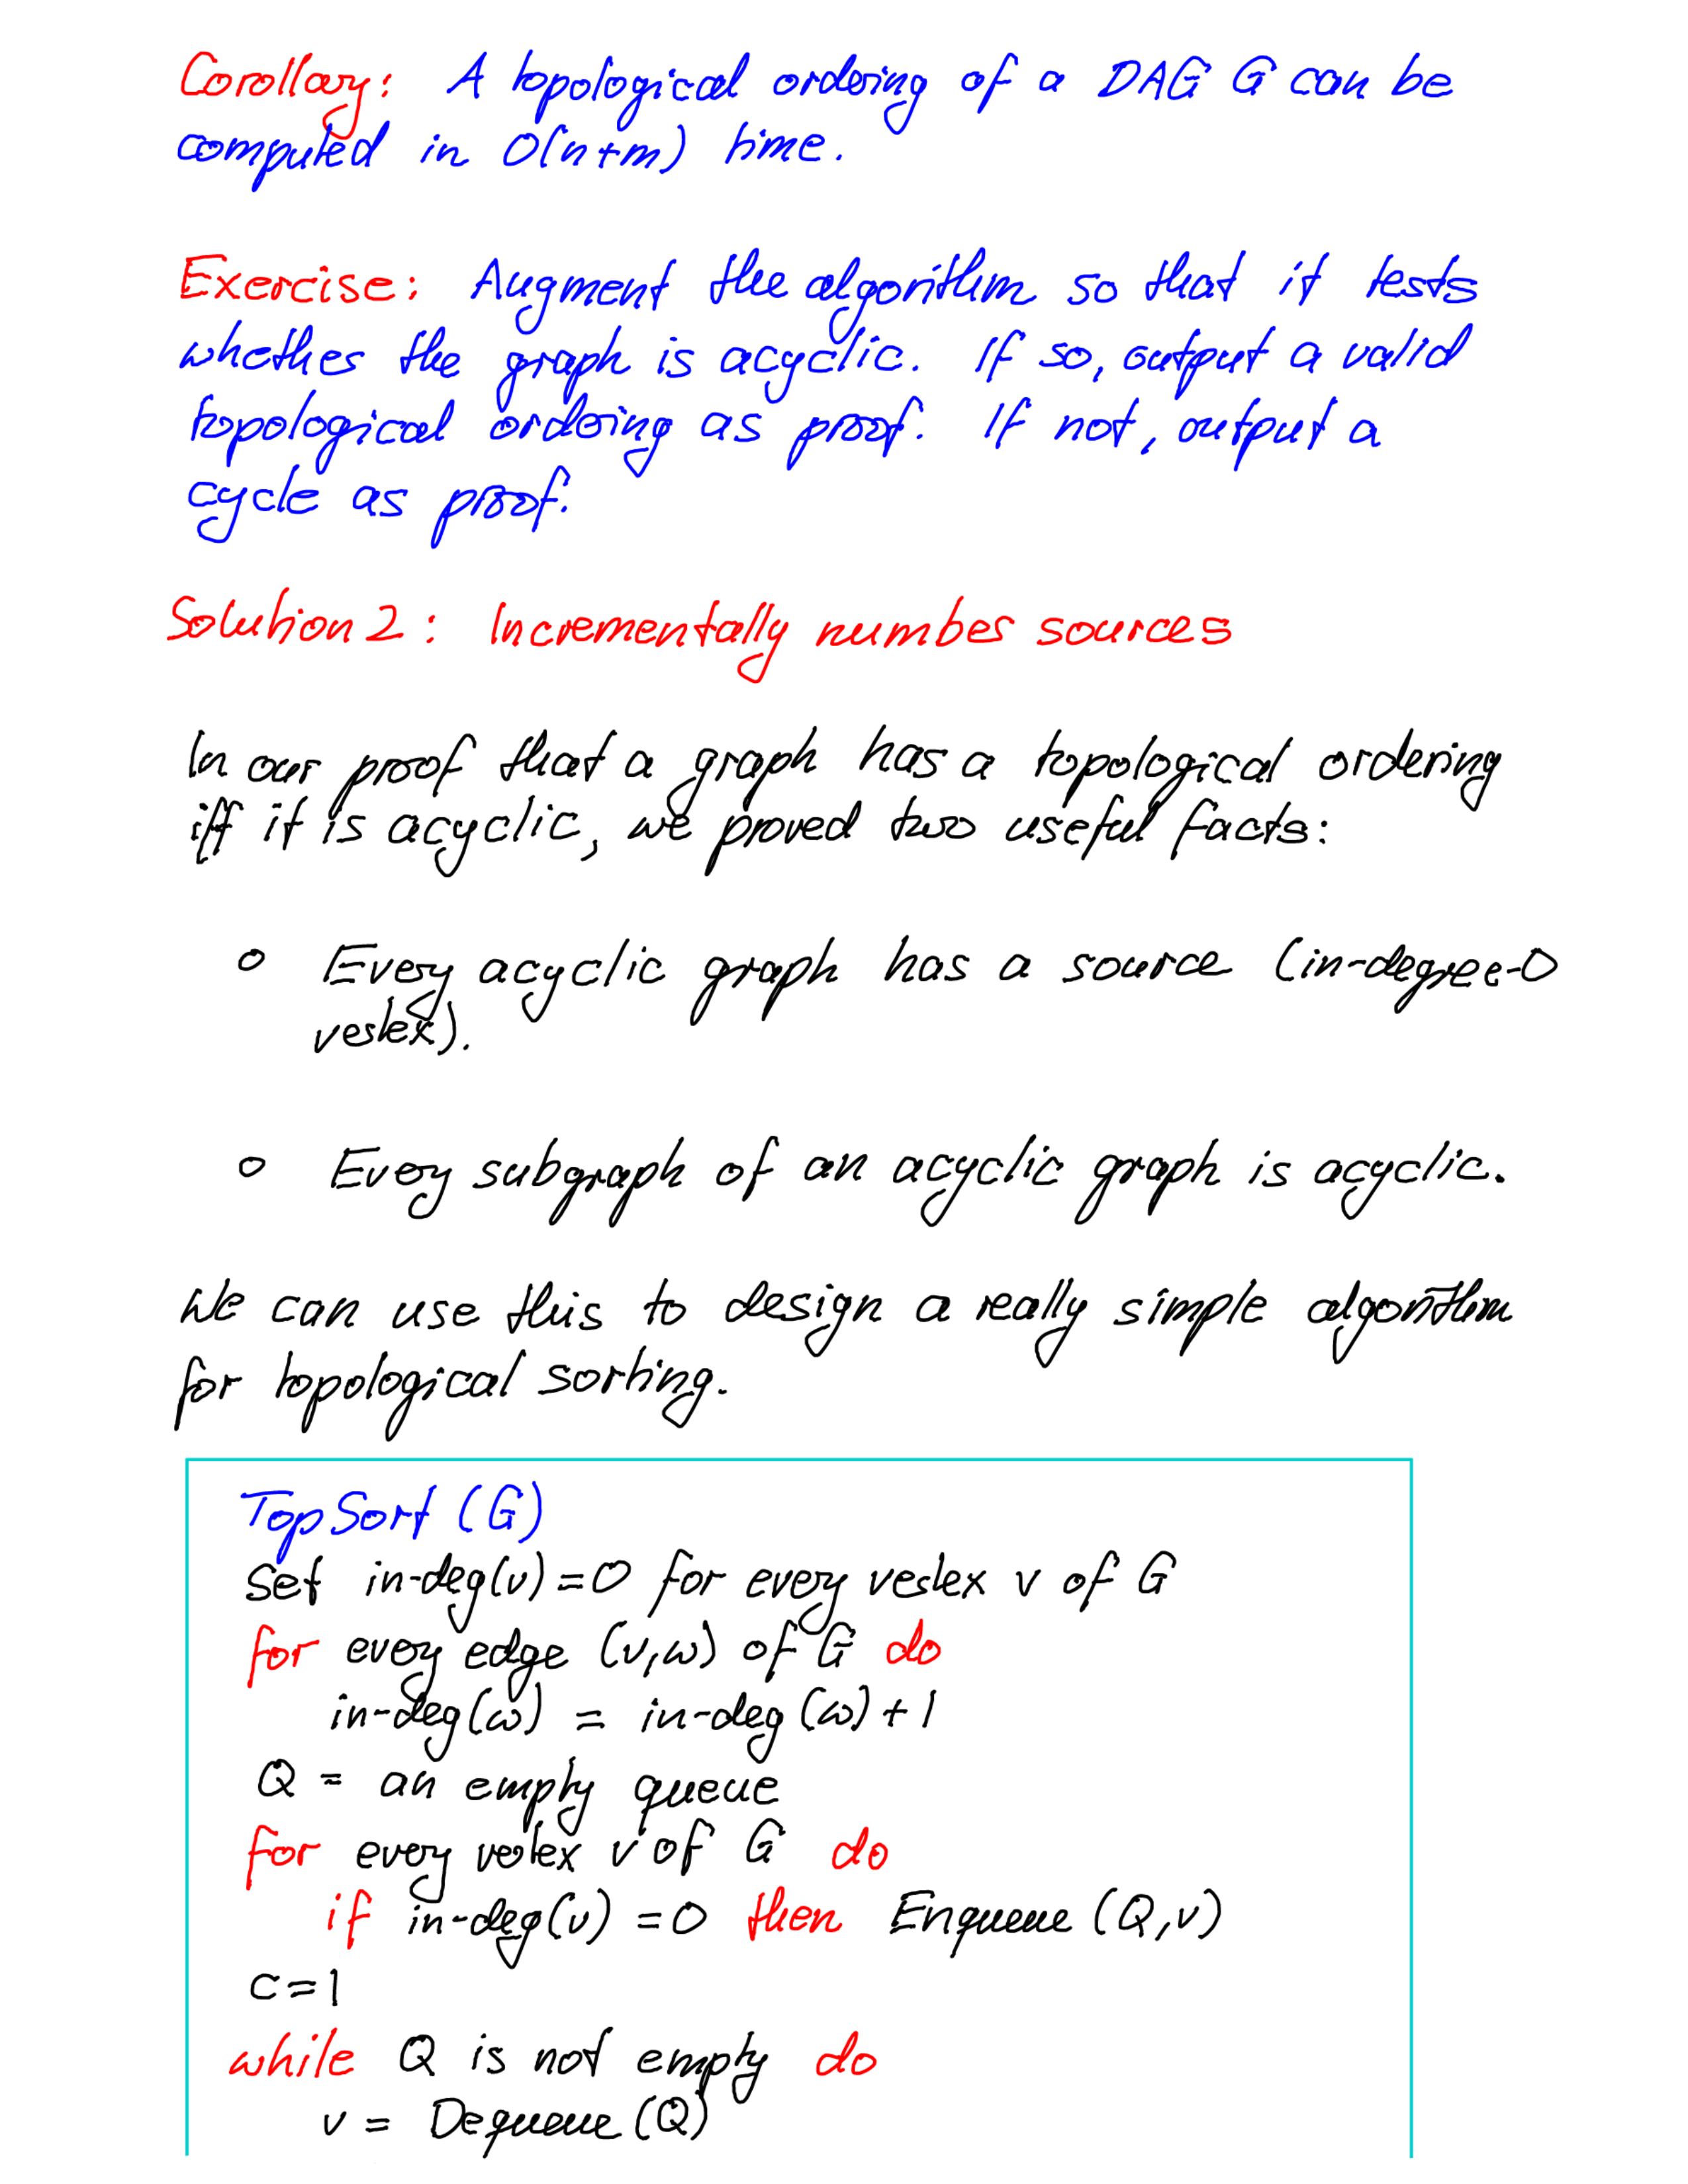 Corollary: A topological ordering of a DAG G can be
computed in O(n+m) time.
Exercise: Augment the algorithm so that it tests
whether the graph is acyclic. If so, output a valid
topological ordering as proof. If not, output a
cycle as proof.
Solution 2: Incrementally number sources
In our proof that a graph has a topological ordering
iff it is acyclic, we proved two useful facts:
o Every acyclic graph has a source (in-degree-0
vertex).
o Every subgraph of an acyclic graph is acyclic.
We can use this to design a really simple algorithm
for topological sorting.
TopSort (G)
Set in-deg(v)=0 for every vertex v of G
for every edge (v,w) of G do
in-deg(w) = in-deg(w)+1
Q = an empty queue
for every vertex v of G do
if in-deg(v) =0 then Enqueue (Q,v)
c=1
while Q is not empty do
v = Dequeue (Q)